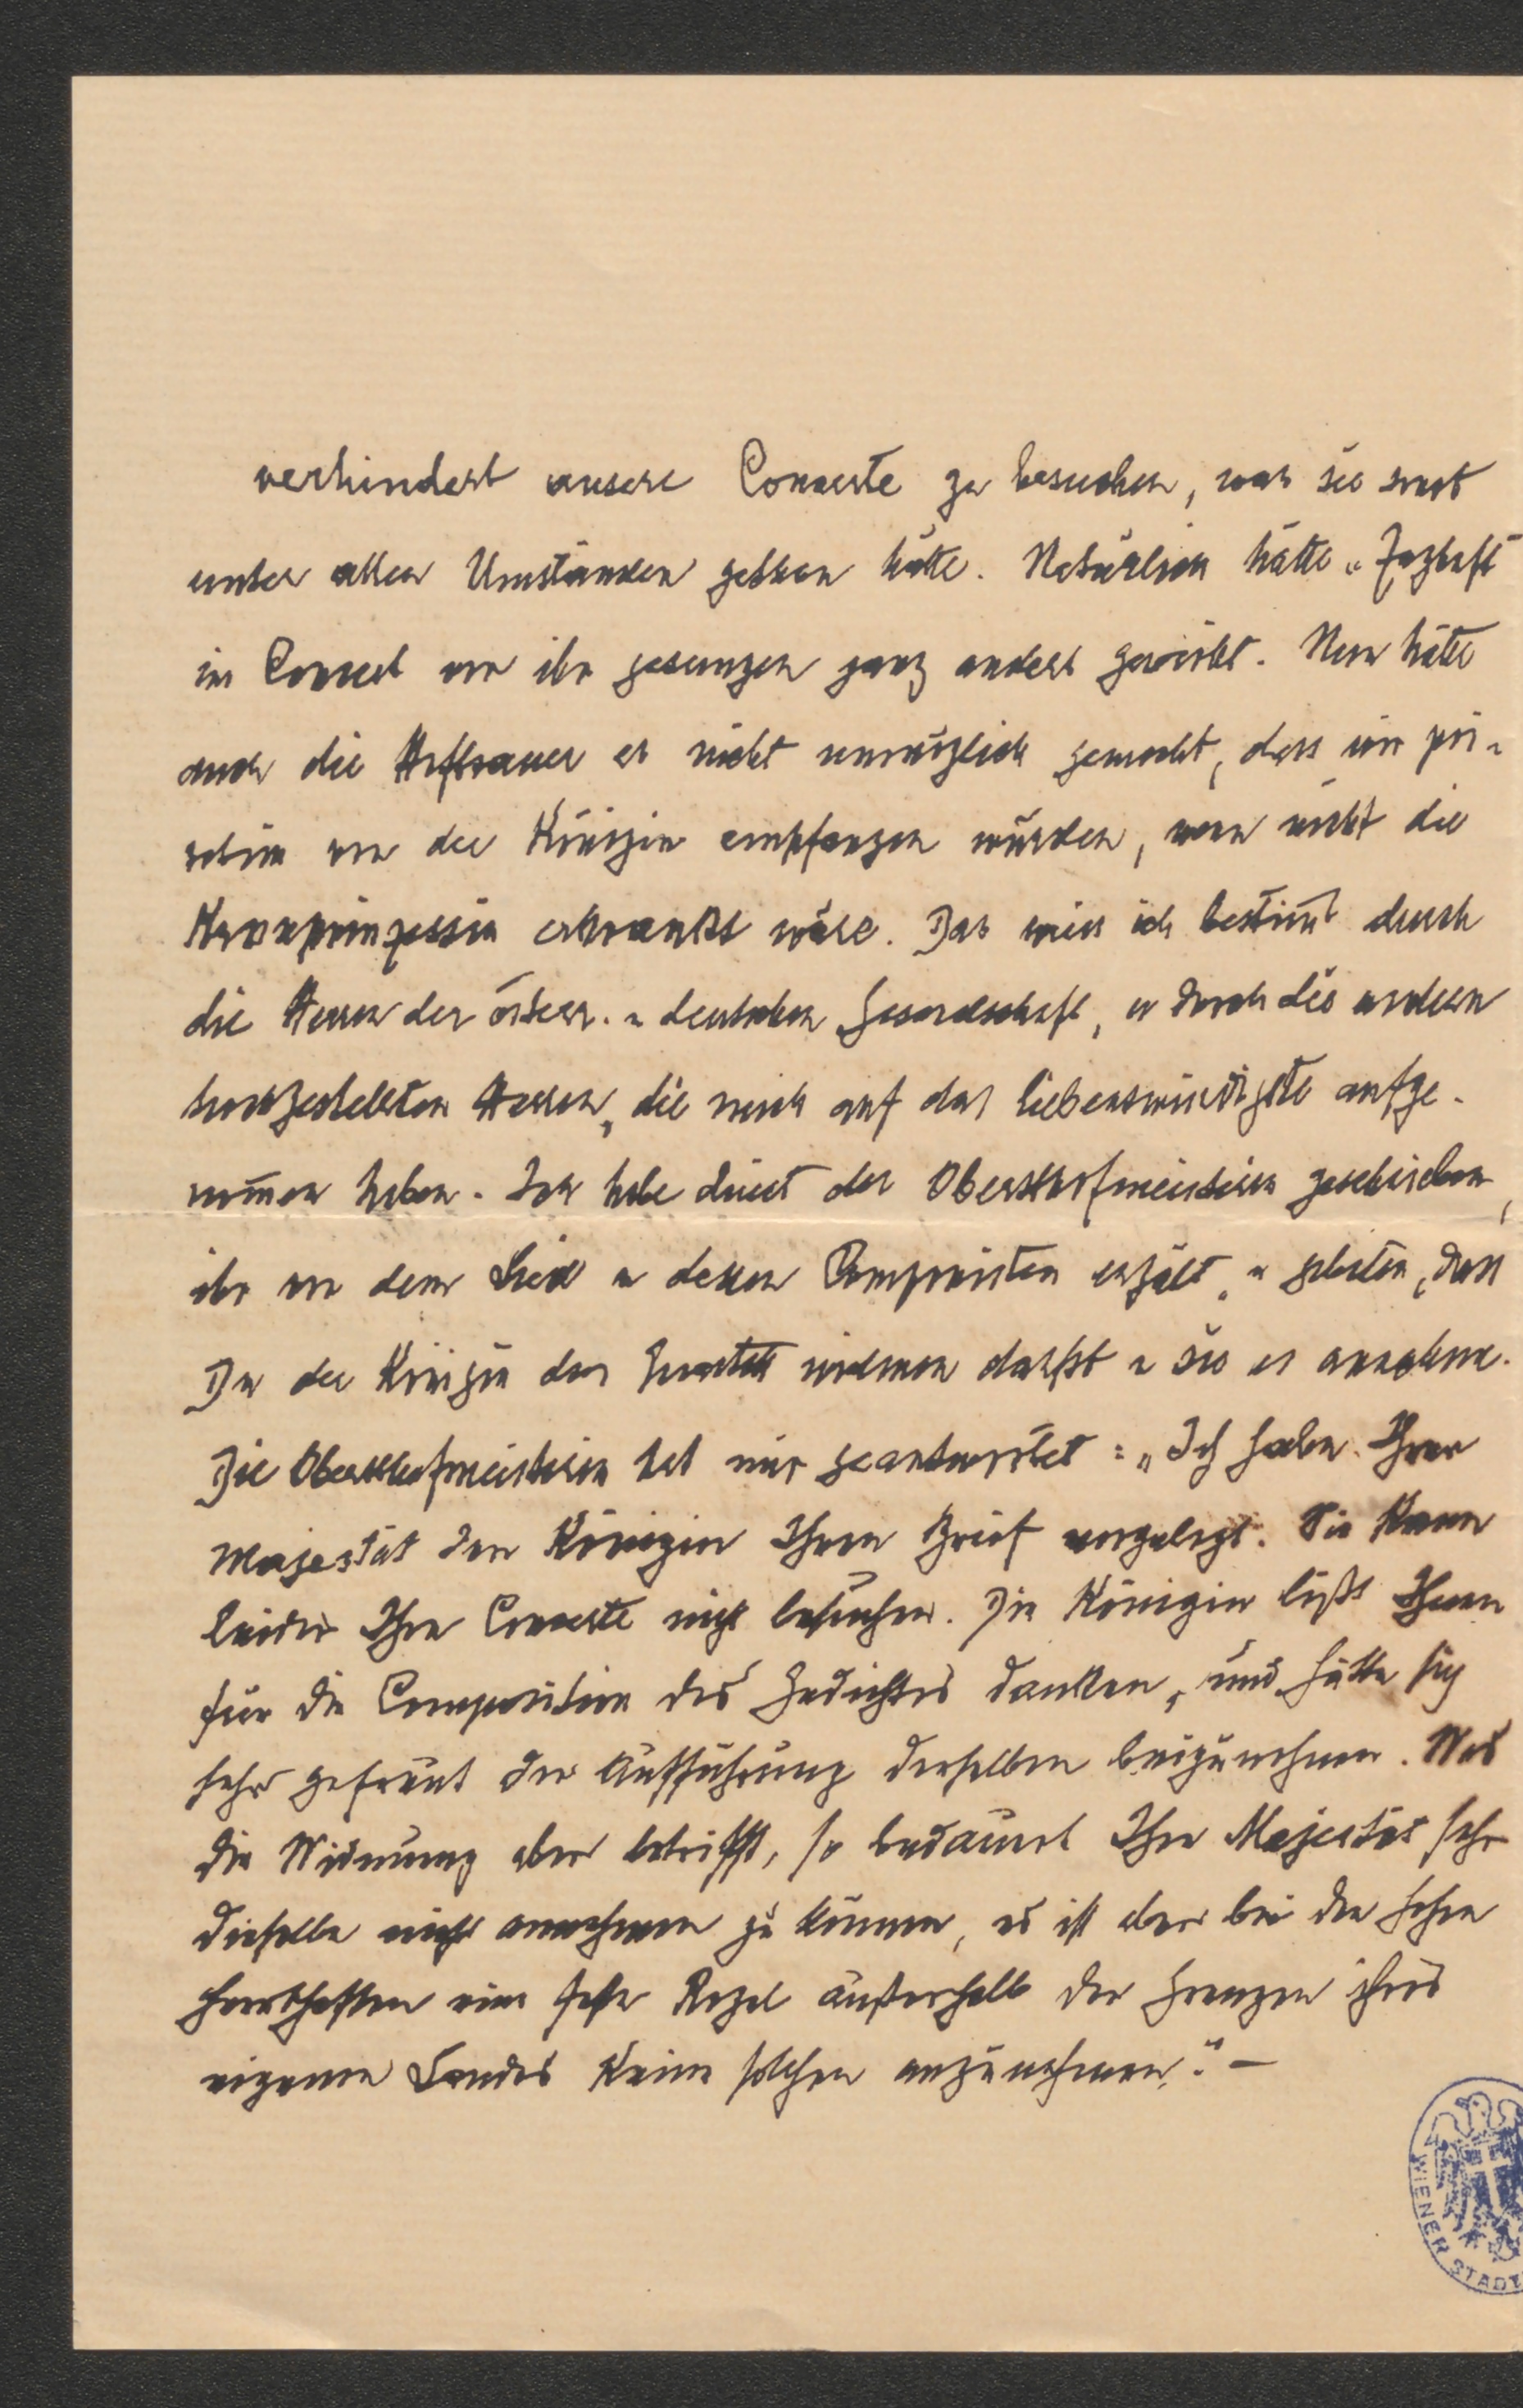 verhindert unsere Concerte zu besuchen, was sie sonst
unter allen Umständen gethan hätte. Natürlich hätte „Zaghaft
im Concert von ihr gesungen ganz anders gewirkt. Nun hätte
auch die Hoftrauer es nicht unmöglich gemacht, dass wir pri-
vatim von der Königin empfangen würden, wenn nicht die
Kronprinzessin erkrankt wäre. Das weiss ich bestimt durch
die Herren der österr. u deutschen Gesandschaft, u durch die andern
hochgestellten Herren, die mich auf das liebenswürdigste aufge-
nommen haben. Ich habe direct der Obersthofmeisterin geschrieben,
ihr von dem Lied u dessen Componisten erzält, u gebeten, dass
Du der Königin das widmen darfst u sie es annehme.
Die Obersthofmeisterin hat mir geantwortet: „Ich habe Ihrer
Majestät der Königin Ihren Brief vorgelegt. Sie kann
leider Ihre Concerte nicht besuchen. Die Königin läßt Ihnen
für die Composition des Gedichtes danken, und hätte sich
sehr gefreut der Aufführung derselben beizuwohnen. Was
die Widmung aber betrifft, so bedauert Ihre Majestät sehr
dieselbe nicht annehmen zu können, es ist aber bei den hohen
Herrschaften eine feste Regel außerhalb der Grenzen ihres
eigenen Landes keine solchen anzunehmen." –
WIENER STADT